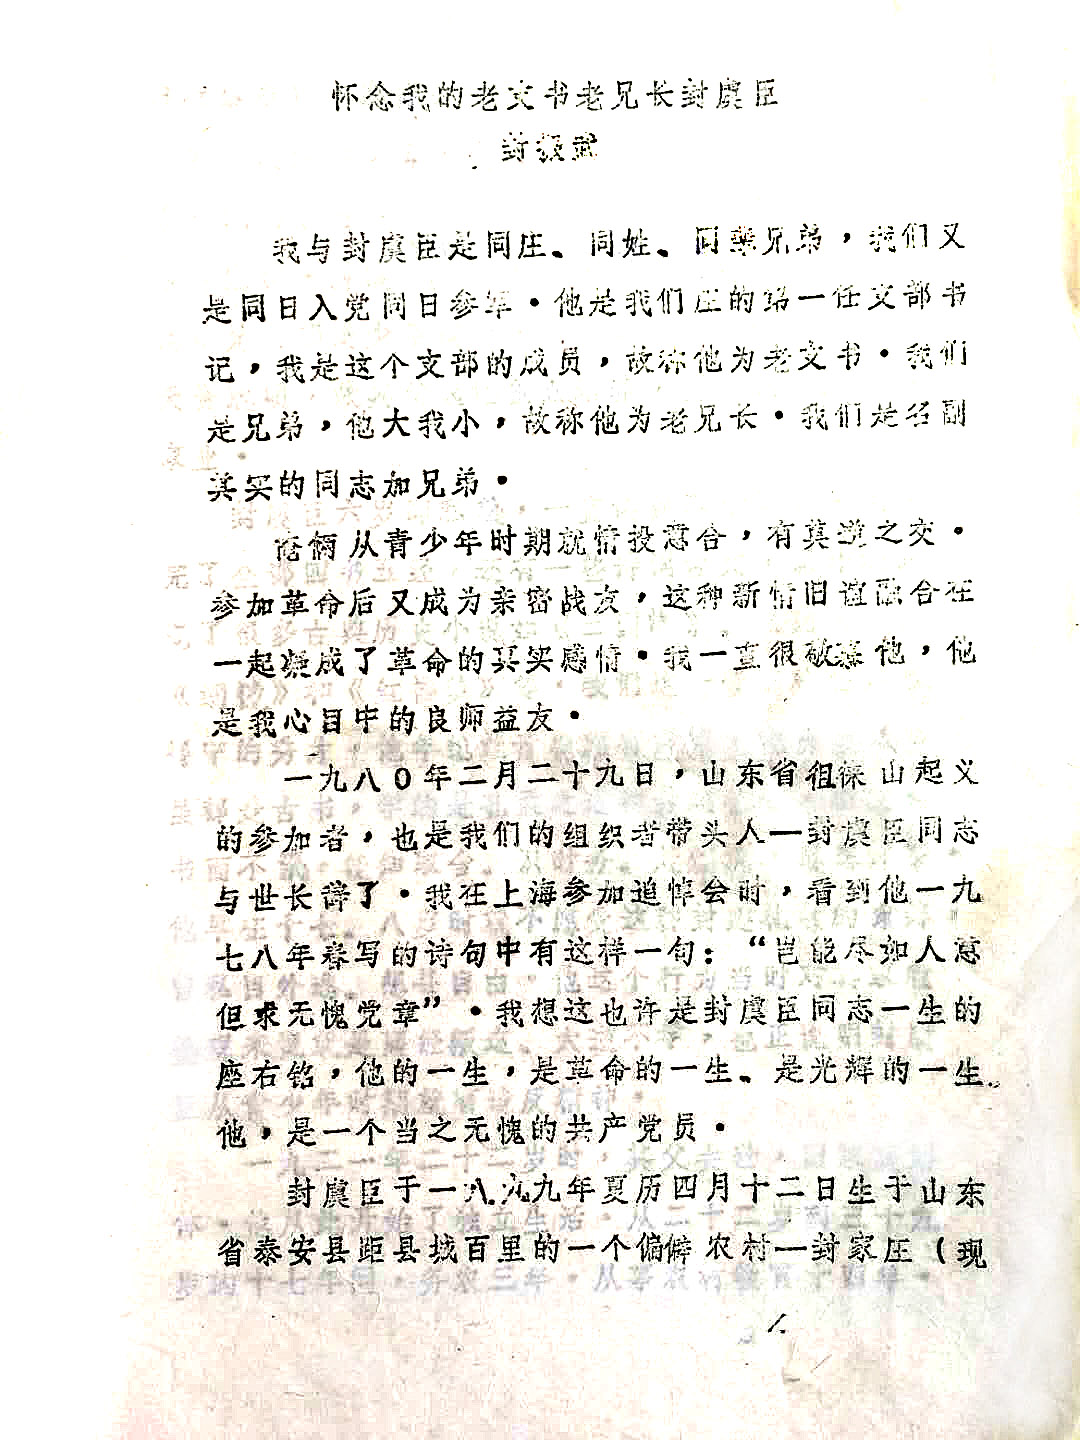 怀念我的老文书老兄长封虞臣
封振武
我与封虞臣是同庄、同姓、同辈兄弟，我们又
是同日入党同日参军。他是我们庄的第一任支部书
记，我是这个支部的成员，故称他为老文书。我们
是兄弟，他大我小，故称他为老兄长。我们是名副
其实的同志加兄弟。
俺俩从青少年时期就情投意合，有莫逆之交。
参加革命后又成为亲密战友，这种新情旧谊融合在
一起凝成了革命的真实感情。我一直很敬慕他，他
是我心目中的良师益友。
一九八〇年二月二十九日，山东省徂徕山起义
的参加者，也是我们的组织者带头人—封虞臣同志
与世长辞了。我在上海参加追悼会时，看到他一九
七八年春写的诗句中有这样一句：“岂能尽如人意
但求无愧党章”。我想这也许是封虞臣同志一生的
座右铭，他的一生，是革命的一生、是光辉的一生。
他，是一个当之无愧的共产党员。
封虞臣于一八九九年夏历四月十二日生于山东
省泰安县距县城百里的一个偏僻农村—封家庄（现
1.